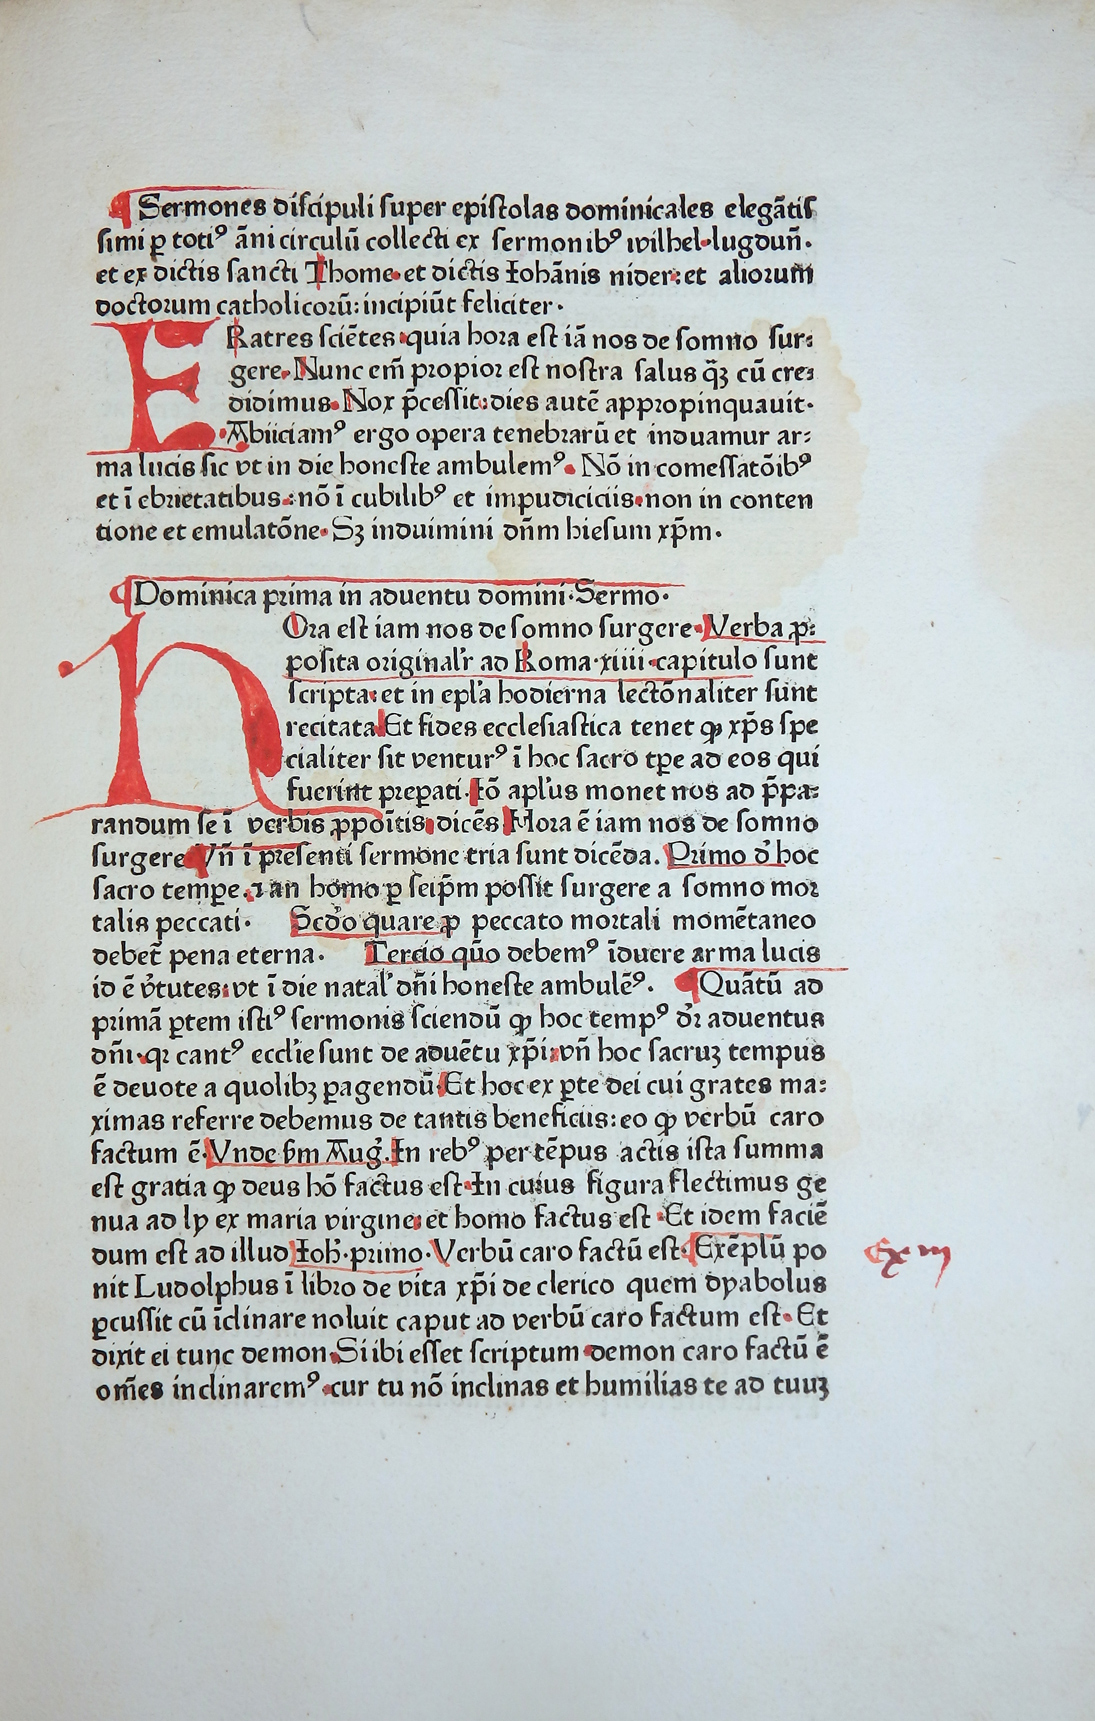 ¶ Sermones diſcipuli ſuper epiſtolas dominicales elegãtiſ
ſimi ꝑ totiꝰ ãni circulũ collecti ex ſermonibꝰ wilhel·lugduñ·
et ex dictis ſancti Thome·et dictis Iohãnis nider:et aliorum
doctorum catholicorũ:incipiũt feliciter·
FRatres ſciẽtes·quia hora eſt iã nos de ſomno ſur⸗
gere·Nunc em̃ propior eſt noſtra ſalus q̃ꝫ cũ cre⸗
didimus·Nox p̃ceſſit:dies autẽ appropinquauit·
·Abiiciamꝰ ergo opera tenebrarũ et induamur ar⸗
ma lucis ſic vt in die honeſte ambulemꝰ·Nõ in comeſſatõibꝰ
et ĩ ebrietatibus:nõ ĩ cubilibꝰ et impudiciciis·non in conten
tione et emulatõne·Sꝫ induimini dñm hieſum xp̃m·
¶ Dominica prima in aduentu domini·Sermo·
hOra eſt iam nos de ſomno ſurgere·Verba ꝓ⸗
poſita original'r ad Roma·xiiii·capitulo ſunt
ſcripta:et in epl'a hodierna lectõnaliter ſunt
recitata·Et fides eccleſiaſtica tenet ꝙ xp̃s ſpe
cialiter ſit venturꝰ ĩ hoc ſacro tꝑe ad eos qui
fuerint preꝑati·Iõ apl'us monet nos ad p̃pa⸗
randum ſe ĩ verbis ꝓpoĩtis·dicẽs Hora ẽ iam nos de ſomno
ſurgere ¶ Vñ ĩ preſenti ſermone tria ſunt dicẽda. Primo d' hoc
ſacro tempe.ꝛ an homo ꝑ ſeip̃m poſſit ſurgere a ſomno mor
talis peccati· Scd'o quare ꝓ peccato mortali momẽtaneo
debet̃ pena eterna· Tercio qũo debemꝰ ĩduere arma lucis
id ẽ v'tutes:vt ĩ die natal' dñi honeſte ambulẽꝰ. ¶ Quãtũ ad
primã ꝑtem iſtiꝰ ſermonis ſciendũ ꝙ hoc tempꝰ dr̃ aduentus
dñi·qꝛ cantꝰ eccl'ie ſunt de aduẽtu xp̃i:vñ hoc ſacruꝫ tempus
ẽ deuote a quolibꝫ ꝑagendũ·Et hoc ex ꝑte dei cui grates ma⸗
ximas referre debemus de tantis beneficiis:eo ꝙ verbũ caro
factum ẽ·Vnde ẜm Aug'.In rebꝰ per tẽpus actis iſta ſumma
eſt gratia ꝙ deus hõ factus eſt·In cuius figura flectimus ge
nua ad ly ex maria virgine:et homo factus eſt·Et idem faciẽ
dum eſt ad illud Ioh'·primo·Verbũ caro factũ eſt·¶ Exẽplũ po
Exm
nit Ludolphus ĩ libro de vita xp̃i de clerico quem dyabolus
ꝑcuſſit cũ ĩclinare noluit caput ad verbũ caro factum eſt·Et
dixit ei tunc demon·Si ibi eſſet ſcriptum·demon caro factũ ẽ
om̃es inclinaremꝰ·cur tu nõ inclinas et humilias te ad tuuꝫ